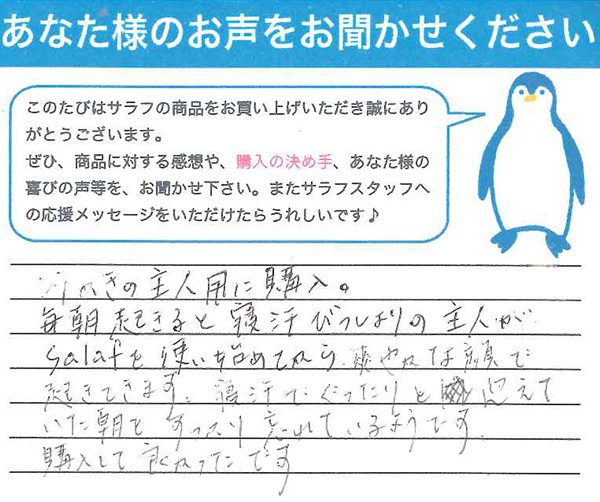 あなた様のお声をお聞かせください
このたびはサラフの商品をお買い上げいただき誠にあり
がとうございます。
ぜひ、商品に対する感想や、購入の決め手、あなた様の
喜びの声等を、お聞かせ下さい。またサラフスタッフへ
の応援メッセージをいただけたらうれしいです♪
汗かきの主人用に購入。
毎朝起きると寝汗びっしょりの主人が
salafを使い始めてから、爽やかな顔で
起きてきます。寝汗でぐったりと迎えて
いた朝をすっかり忘れているようです。
購入して良かったです